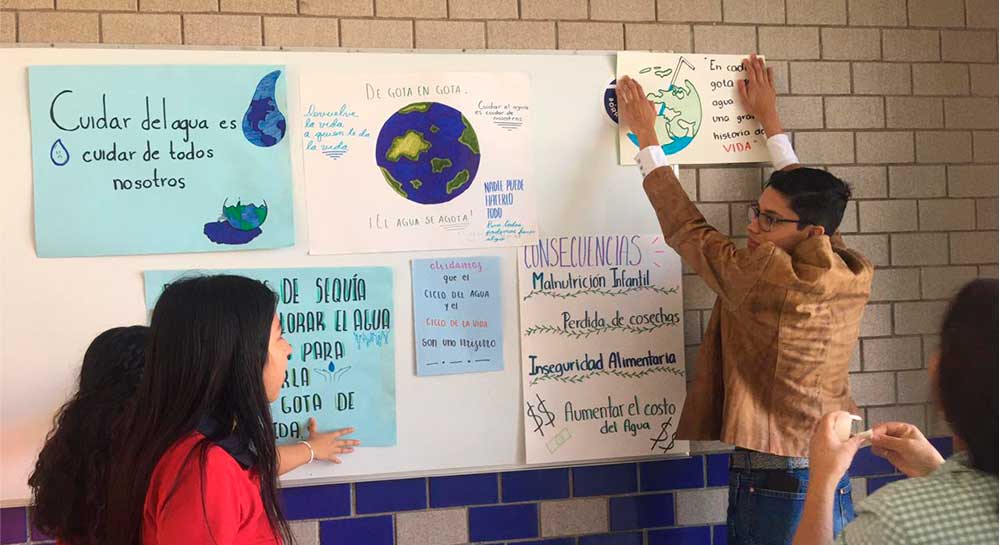 Cuidar del agua es
cuidar de todos
nosotros
DE GOTA EN GOTA.
Devuelve
la vida
a quien te da
la vida
Cuidar el agua
es cuidar de
nosotros
NADIE PUEDE
HACERLO
TODO
Pero todos
podemos hacer
algo
¡EL AGUA SE AGOTA!
"En cada
gota
una gran
historia de
VIDA"
DE SEQUÍA
EL AGUA
PARA
GOTA DE
Olvidamos
que el
CICLO DEL AGUA
y el
CICLO DE LA VIDA
SON UNO MISMO
CONSECUENCIAS
Malnutrición Infantil
Perdida de cosechas
Inseguridad Alimentaria
$$ Aumentar el costo
del Agua $$